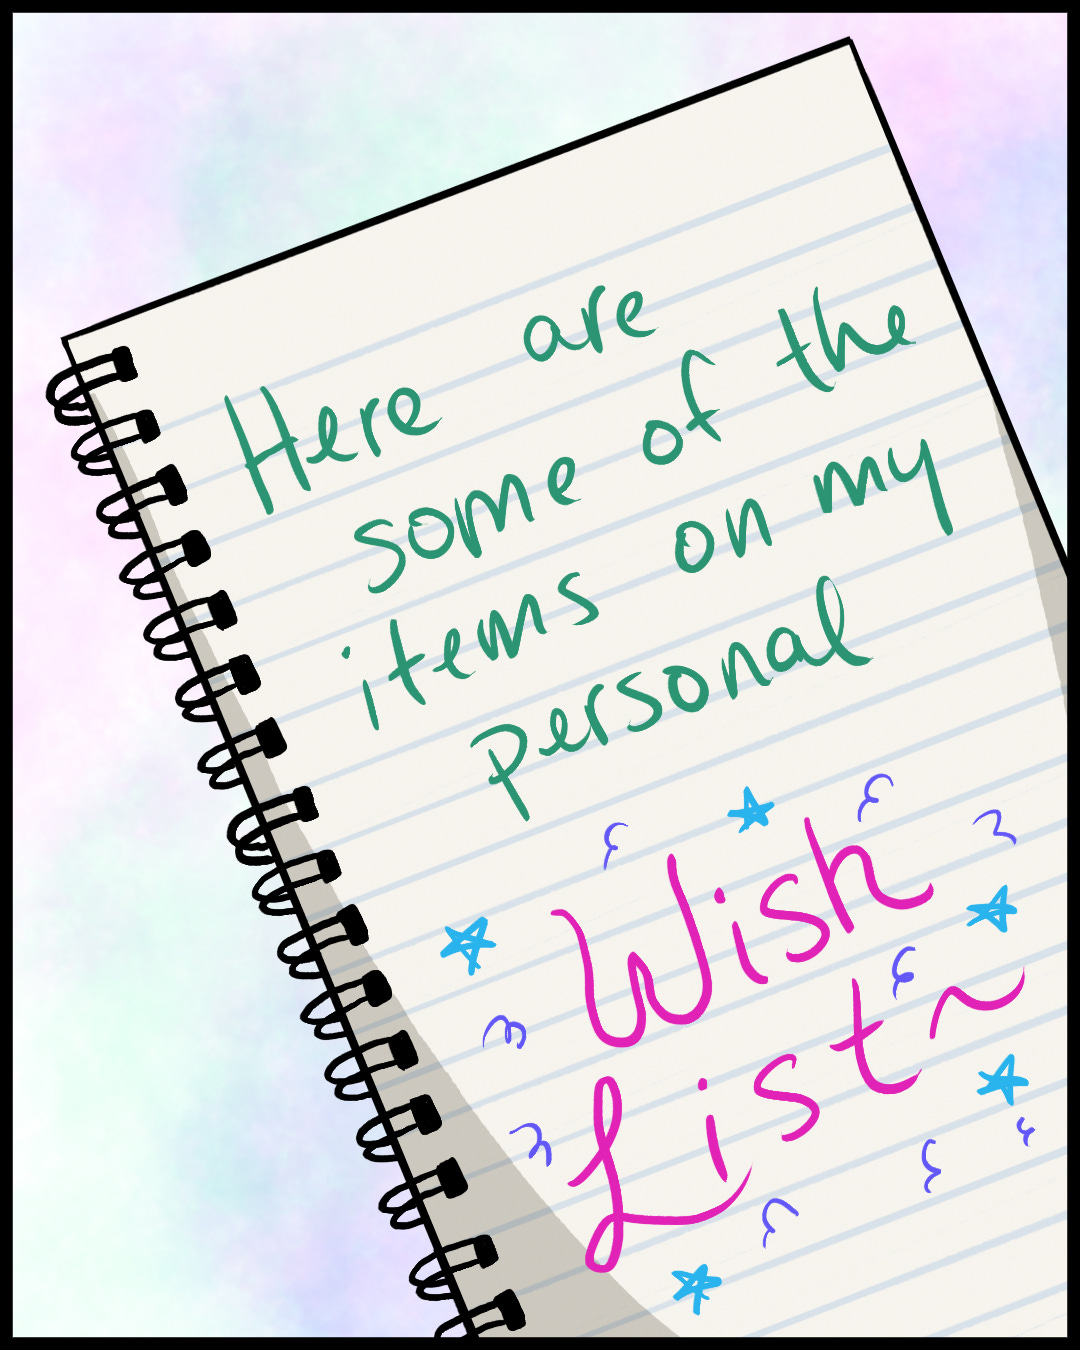 Here are
some of the
items on my
personal
Wish
List~